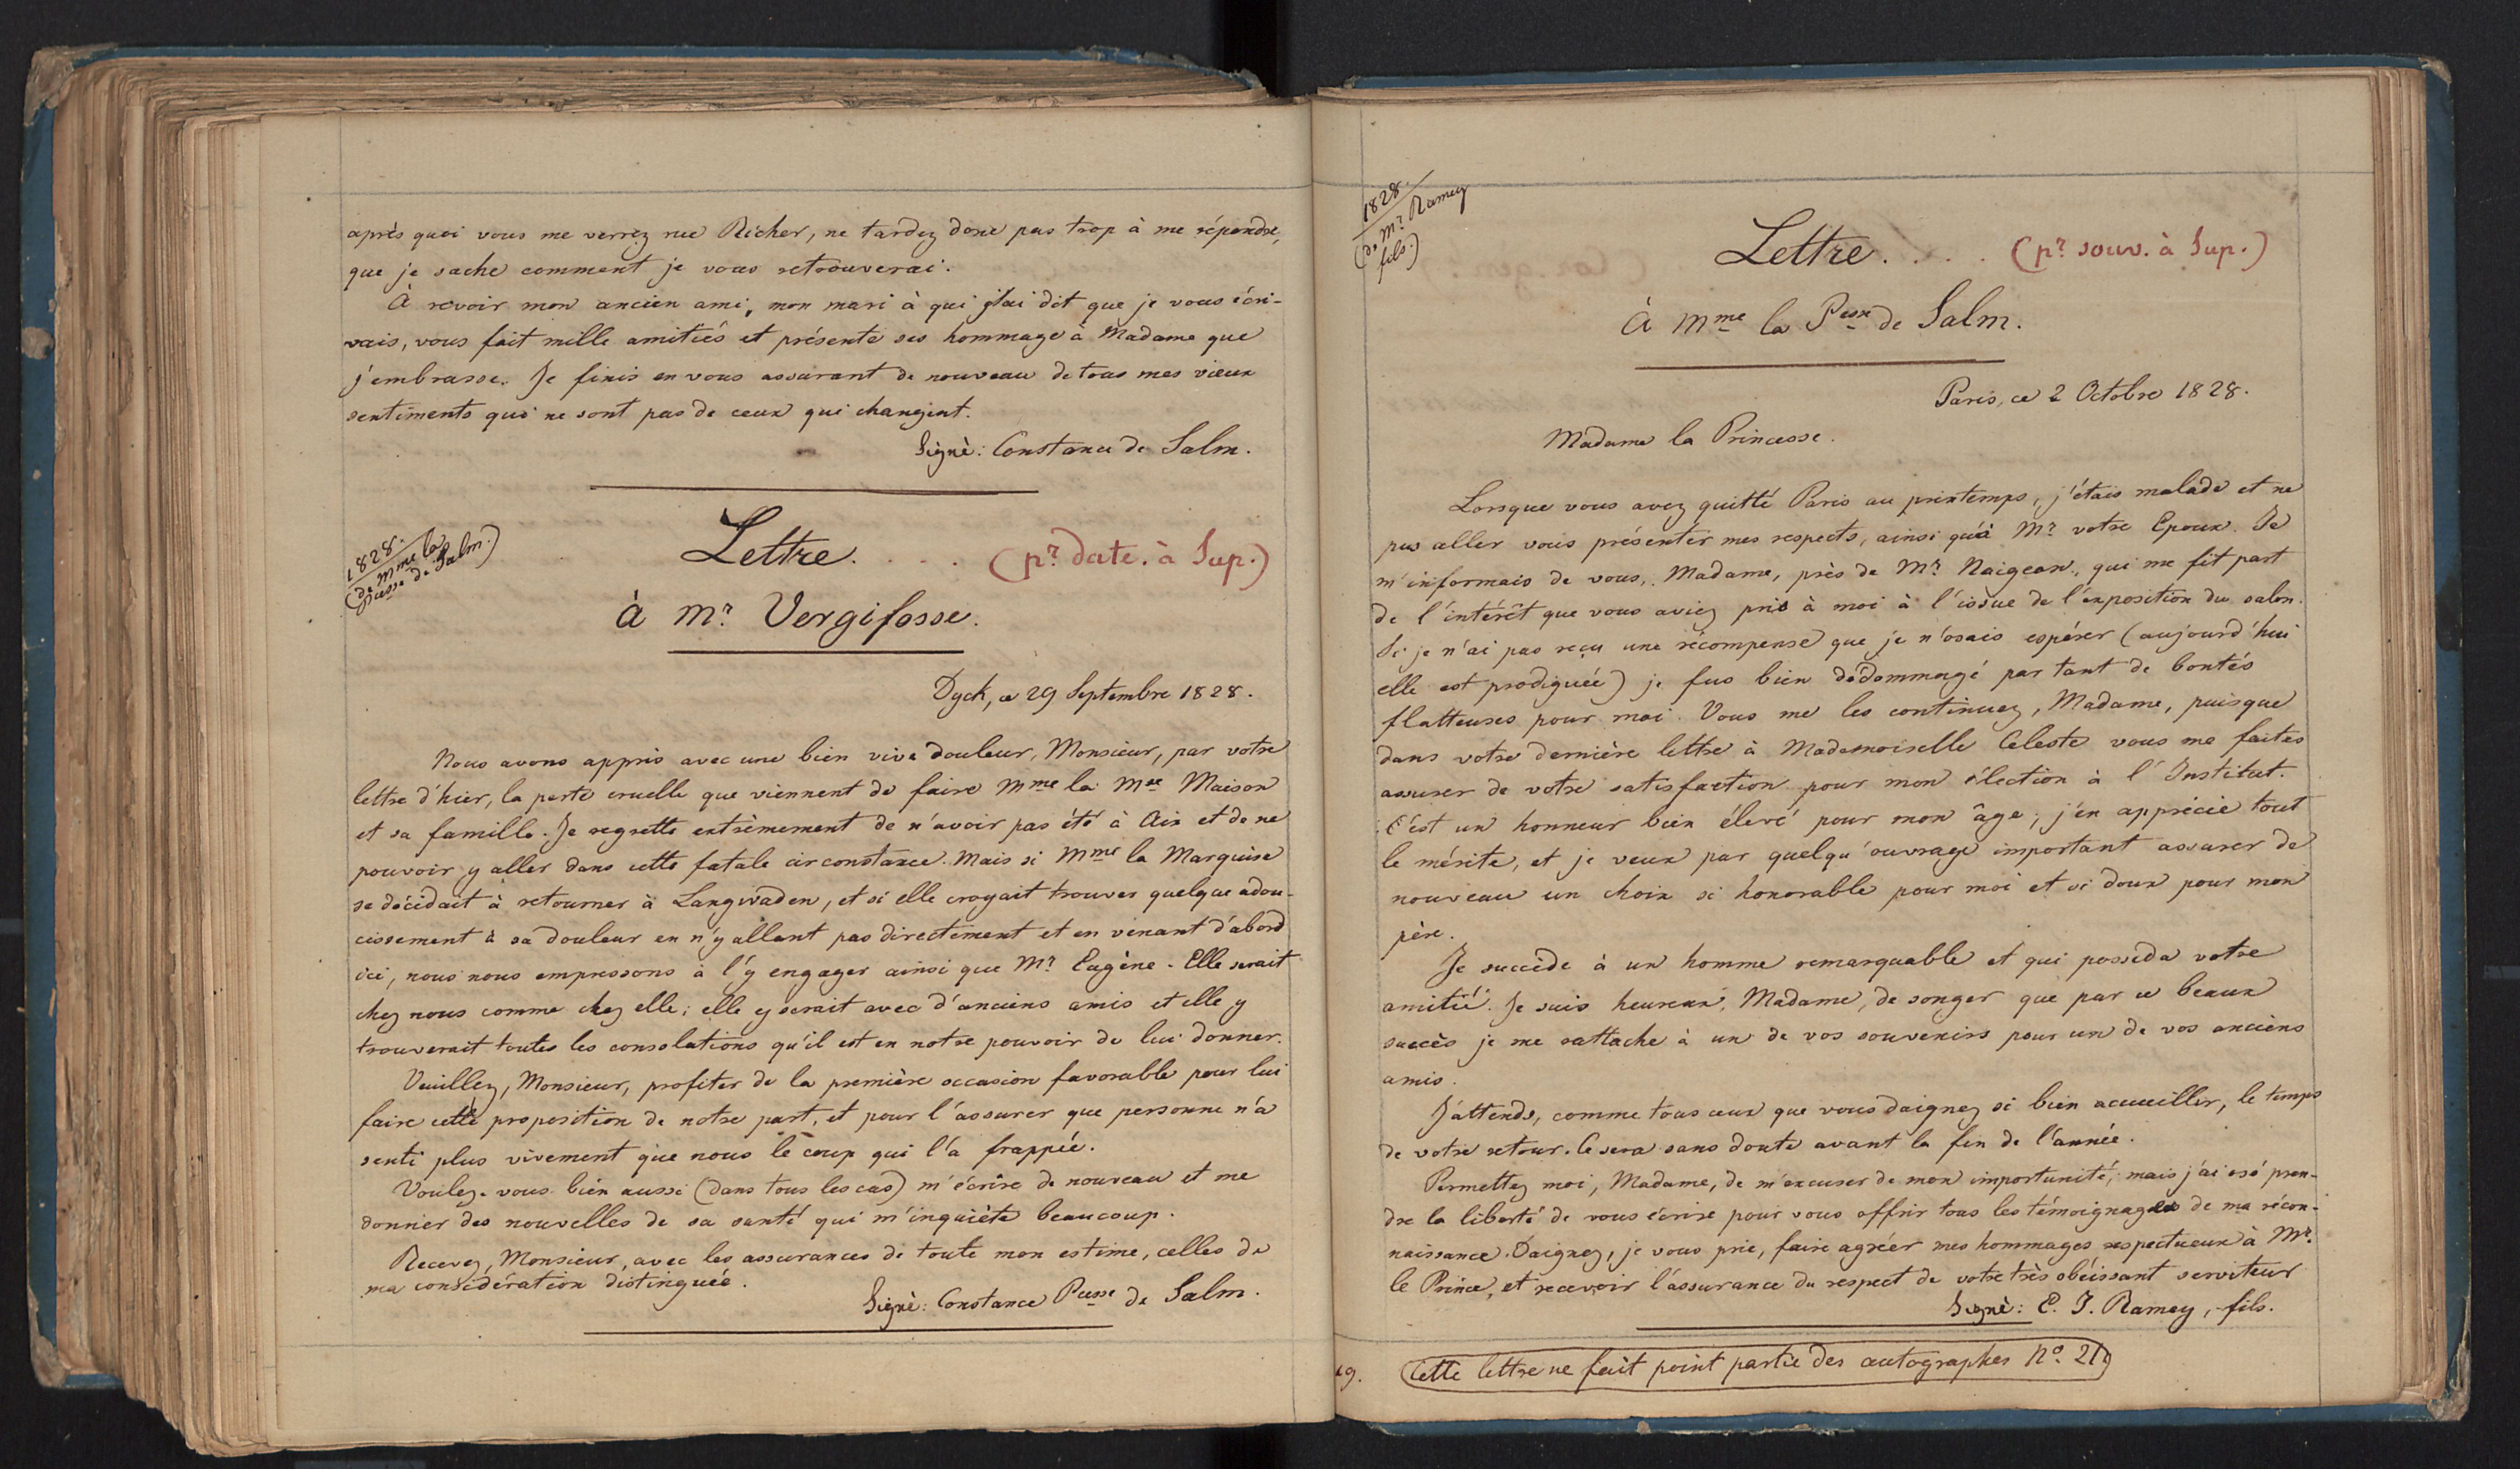 après quoi vous me verrez rue Richer, ne tardez donc pas trop à me répondre,
que je sache comment je vous retrouverai.
À revoir mon ancien ami, mon mari à qui j'ai dit que je vous écri-
vais, vous fait mille amitiés et présente ses hommage à Madame que
j'embrasse. Je finis en vous assurant de nouveau de tous mes vieux
sentiments qui ne sont pas de ceux qui changent.
Signé: Constance de Salm.
1828.
(de Mme la
Pcesse de Salm.)
Lettre. . . . (pr date. à Sup.)
à Mr Vergifosse.
Dyck, ce 29 Septembre 1828.
Nous avons appris avec une bien vive douleur, Monsieur, par votre
lettre d'hier, la perte cruelle que viennent de faire Mme la Mise Maison
et sa famille. Je regrette extrèmement de n'avoir pas été à Aix et de ne
pouvoir y aller dans cette fatale circonstance. Mais si Mme la Marquise
se décidait à retourner à Langwaden, et si elle croyait trouver quelque adou-
cissement à sa douleur en n'y allant pas directement et en venant d'abord
ici, nous nous empressons à l'y engager ainsi que Mr Eugène. Elle serait
chez nous comme chez elle; elle y serait avec d'anciens amis et elle y
trouverait toutes les consolations qu'il est en notre pouvoir de lui donner.
Veuillez, Monsieur, profiter de la première occasion favorable pour lui
faire cette proposition de notre part, et pour l'assurer que personne n'a
senti plus vivement que nous le coup qui l'a frappée.
Voulez-vous bien aussi (dans tous les cas) m'écrire de nouveau et me
donner des nouvelles de sa santé qui m'inquiète beaucoup.
Recevez, Monsieur, avec les assurances de toute mon estime, celles de
ma considération distinguée.
Signé: Constance Pcesse de Salm.
1828.
(de Mr Ramey
fils.)
Lettre. . . . (pr souv. à Sup.)
À Mme la Pcesse de Salm.
Paris, ce 2 Octobre 1828.
Madame la Princesse.
Lorsque vous avez quitté Paris au printemps, j'étais malade et ne
pus aller vous présenter mes respects, ainsi qu'à Mr votre Epoux. Je
m'informais de vous, Madame, près de Mr Naigeon, qui me fit part
de l'intérêt que vous aviez pris à moi à l'issue de l'exposition du salon.
Si je n'ai pas reçu une récompense que je n'osais espérer (aujourd'hui
elle est prodiguée) je fus bien dédommagé par tant de bontés
flatteuses pour moi. Vous me les continuez, Madame, puisque
dans votre dernière lettre à Mademoiselle Celeste vous me faites
assurer de votre satisfaction pour mon élection à l'Institut.
C'est un honneur bien élevé pour mon âge; j'en apprécie tout
le mérite, et je veux par quelqu'ouvrage important assurer de
nouveau un choix si honorable pour moi et si doux pour mon
père.
Je succède à un homme remarquable et qui posséda votre
amitié. Je suis heureux, Madame, de songer que par ce beaux
succès je me rattache à un de vos souvenirs pour un de vos anciens
amis.
J'attends, comme tous ceux que vous daignez si bien acuueillir, le temps
de votre retour. Ce sera sans doute avant la fin de l'année.
Permettez moi, Madame, de m'excuser de mon importunité; mais j'ai osé pren-
dre la liberté de vous écrire pour vous offrir tous les témoignages de ma récon-
naissance. Daignez, je vous prie, faire agréer mes hommages respectueux à Mr
le Prince, et recevoir l'assurance du respect de votre très obéissant serviteur
Signé: E. J. Ramey, fils.
Cette lettre ne fait point partie des autographes No 21